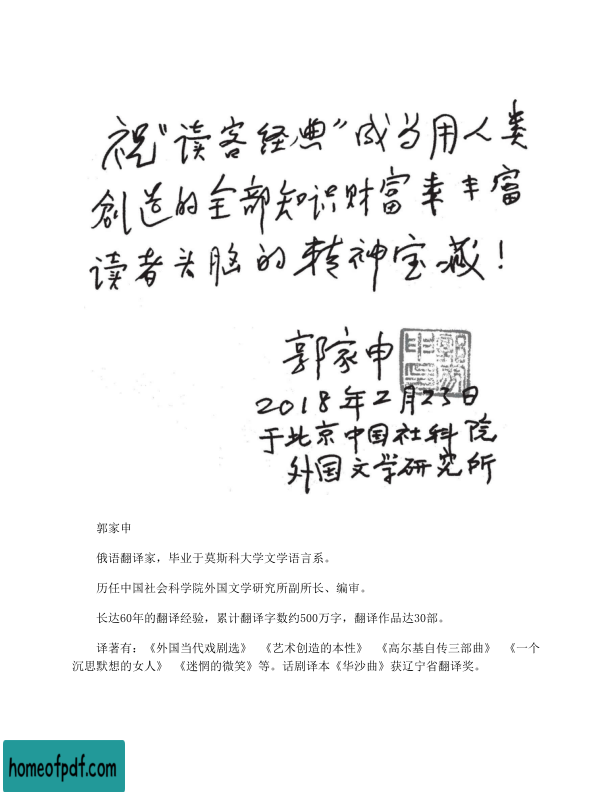 祝“读客经典”成为用人类
創造的全部知识财富来丰富
读者头脑的精神宝藏!
郭家申
2018年2月23日
于北京中国社科院
外国文学研究所
郭家申
俄语翻译家，毕业于莫斯科大学文学语言系。
历任中国社会科学院外国文学研究所副所长、编审。
长达60年的翻译经验，累计翻译字数约500万字，翻译作品达30部。
译著有：《外国当代戏剧选》 《艺术创造的本性》 《高尔基自传三部曲》 《一个
沉思默想的女人》 《迷惘的微笑》等。话剧译本《华沙曲》获辽宁省翻译奖。
homeofpdf.com